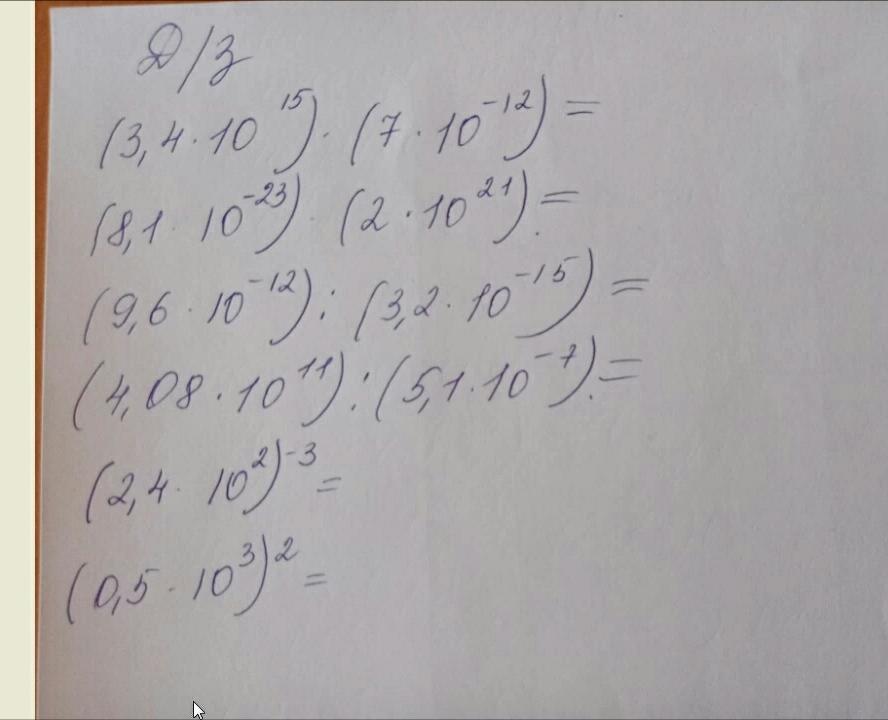 Д/з
(3,4 · 10¹⁵) · (7 · 10⁻¹²) =
(8,1 · 10⁻²³) · (2 · 10²¹) =
(9,6 · 10⁻¹²) : (3,2 · 10⁻¹⁵) =
(4,08 · 10¹¹) : (5,1 · 10⁻⁷) =
(2,4 · 10²)⁻³ =
(0,5 · 10³)² =